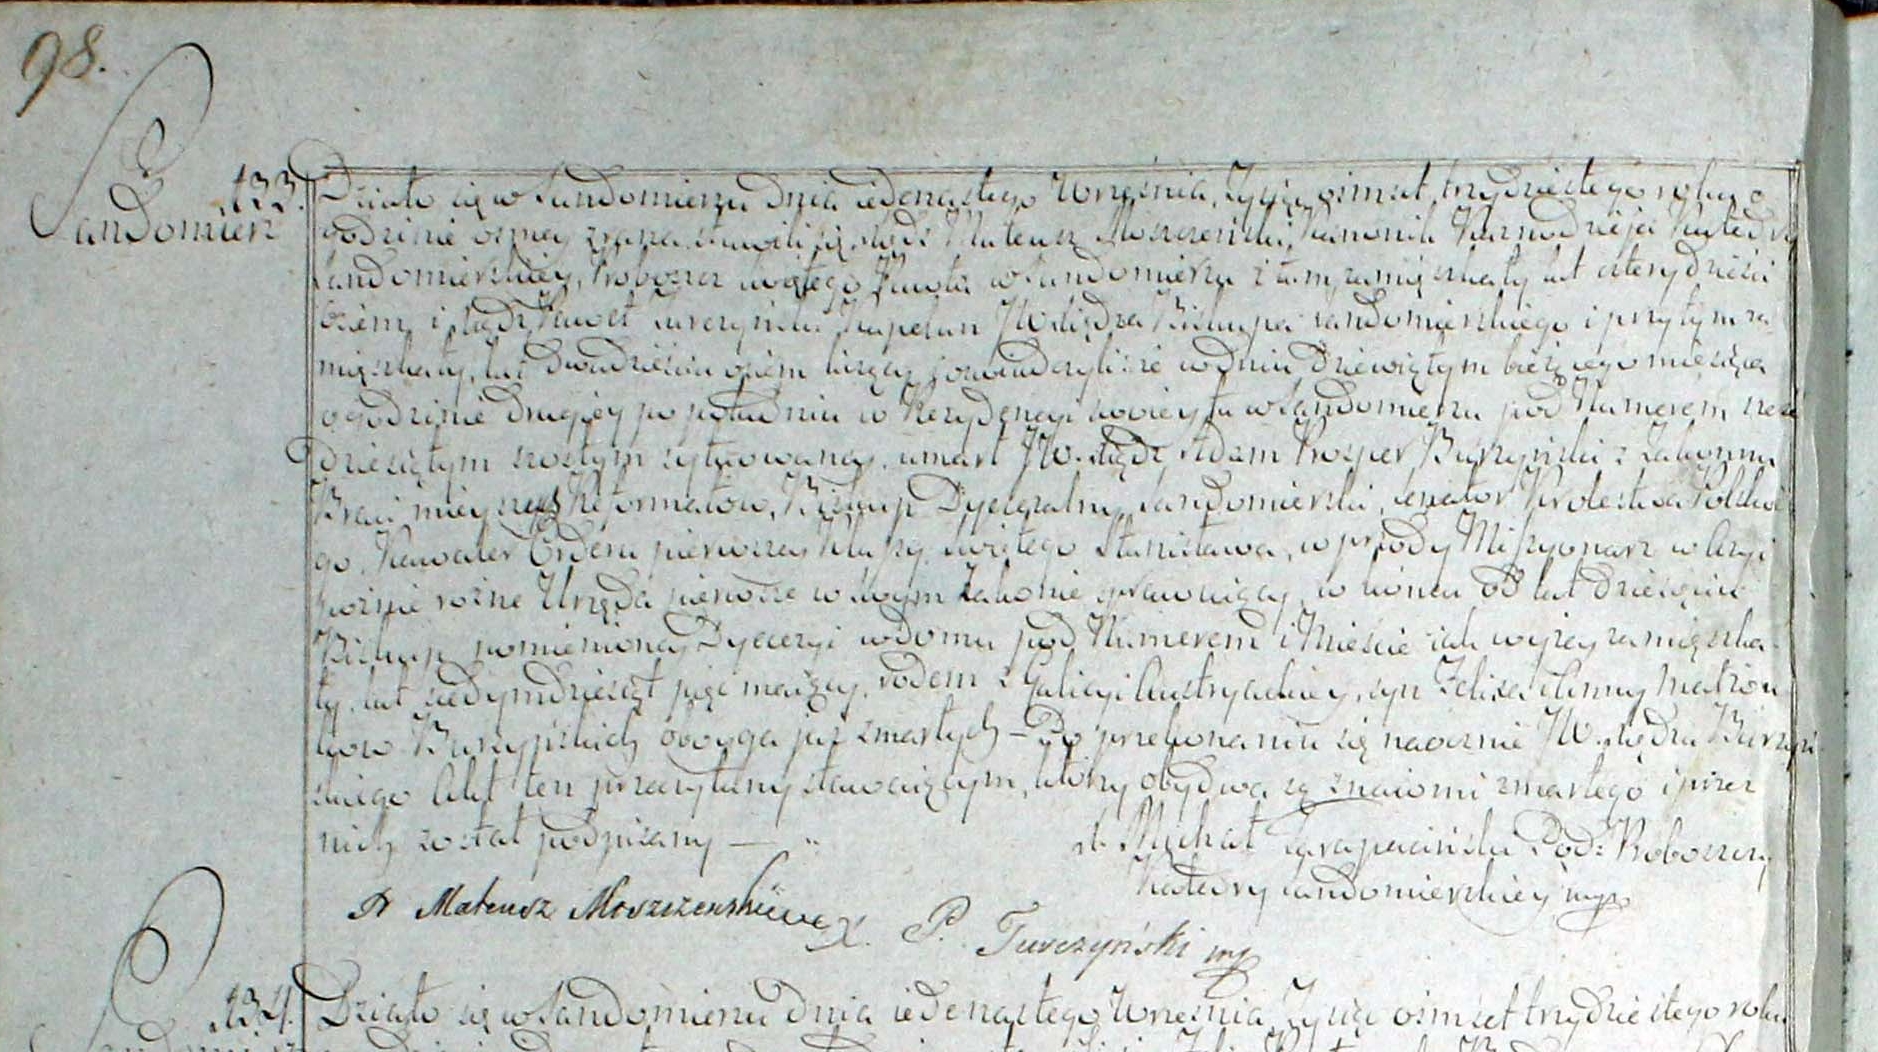 98.
133.
Sandomierz
Działo się w Sandomierzu dnia iedenastego Września, Tysiąc ośmset trzydziestego roku o
godzinie osmey zrana stawili się Xiądz Mateusz Moszczeński, Kanonik Kaznodzieja Katedry
Sandomierskiey, Proboszcz świętego Pawła w Sandomierzu i tamże zamięszkały lat czterydzieści
ośiem, i Xiądz Paweł Turczyński Kapelan JW. Xiędza Biskupa Sandomierskiego i przy tym za
mięszkały, lat dwadzieścia ośiem liczący i oświadczyli iż w dniu dziewiątym bieżącego miesiąca
o godzinie drugiey po południu w Rezydencyi swoiey tu w Sandomierzu pod Numerem sześć
dziesiątym szostym sytuowaney, umarł JW. Xiądz Adam Prosper Burzyński z Zakonu
Braci mnieyszych Reformatow, Biskup Dyecezalny Sandomierski, Senator Krolestwa Polskie
go, Kawaler Orderu pierwszey Klassy Świętego Stanisława, w przody Missyonarz w Azyi
poźnie rożne Urzęda pierwsze w swym Zakonie sprawuiący, w końcu od lat dziesięciu
Biskup pomienioney Dyecezyi w domu pod Numerem i Mieście iak wyżey zamięszka-
ły, lat siedymdziesiąt pięć maiący, rodem z Galicyi Austryackiey, syn Felixa i Anny Małżon
kow Burzyńskich oboyga już zmarłych – Po przekonaniu się naocznie JW. Xiędza Burzyń
skiego Akt ten przeczytany stawaiącym, ktorzy obydwa są znaiomi zmarłego i przez
nich został podpisany —
X. Michał Podz Proboszczy
Katedry Sandomierskiey mp
X Mateusz Moszczenski
X. P. Turczyński mp
134.
Działo się w Sandomierzu dnia iedenastego Września Tysiąc ośmset trzydziestego roku